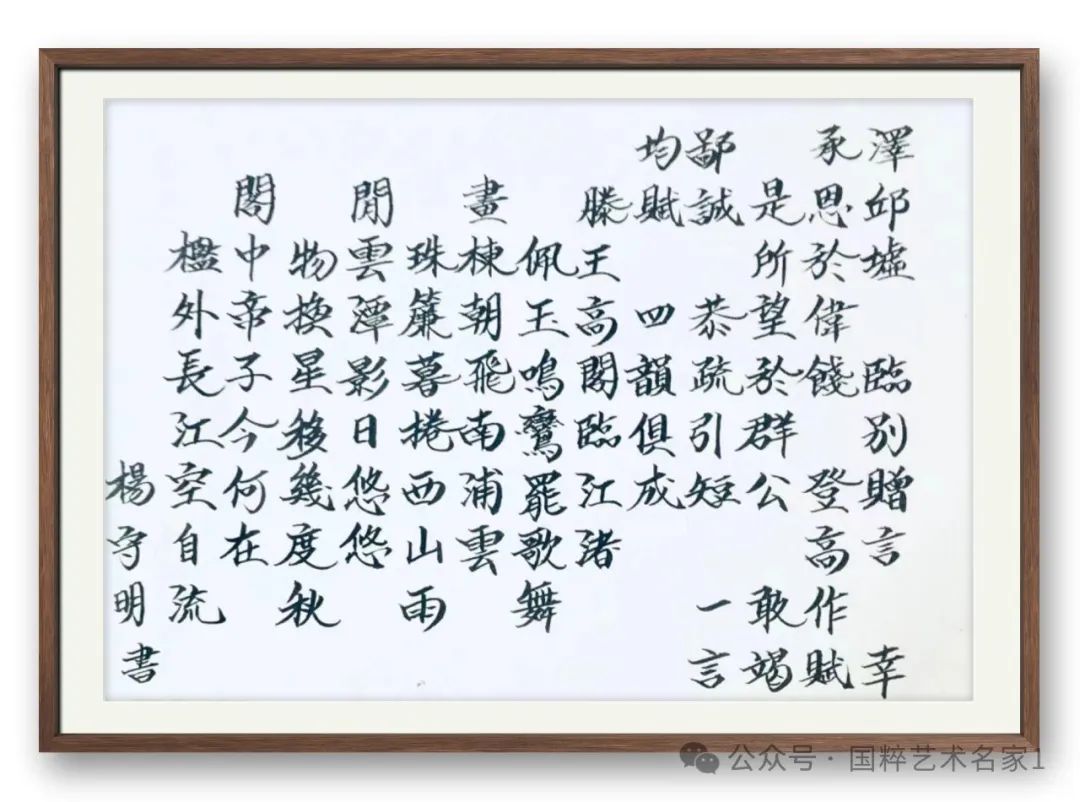 澤邱墟 臨別贈言 幸
承恩於偉餞 登高作賦
是所望於群公 敢竭
鄙誠 恭疏引短 一言
均賦 四韻俱成
滕王高閣臨江渚
佩玉鳴鸞罷歌舞
畫棟朝飛南浦雲
珠簾暮捲西山雨
閒雲潭影日悠悠
物換星移幾度秋
閣中帝子今何在
檻外長江空自流
楊守明書
公众号 · 国粹艺术名家1